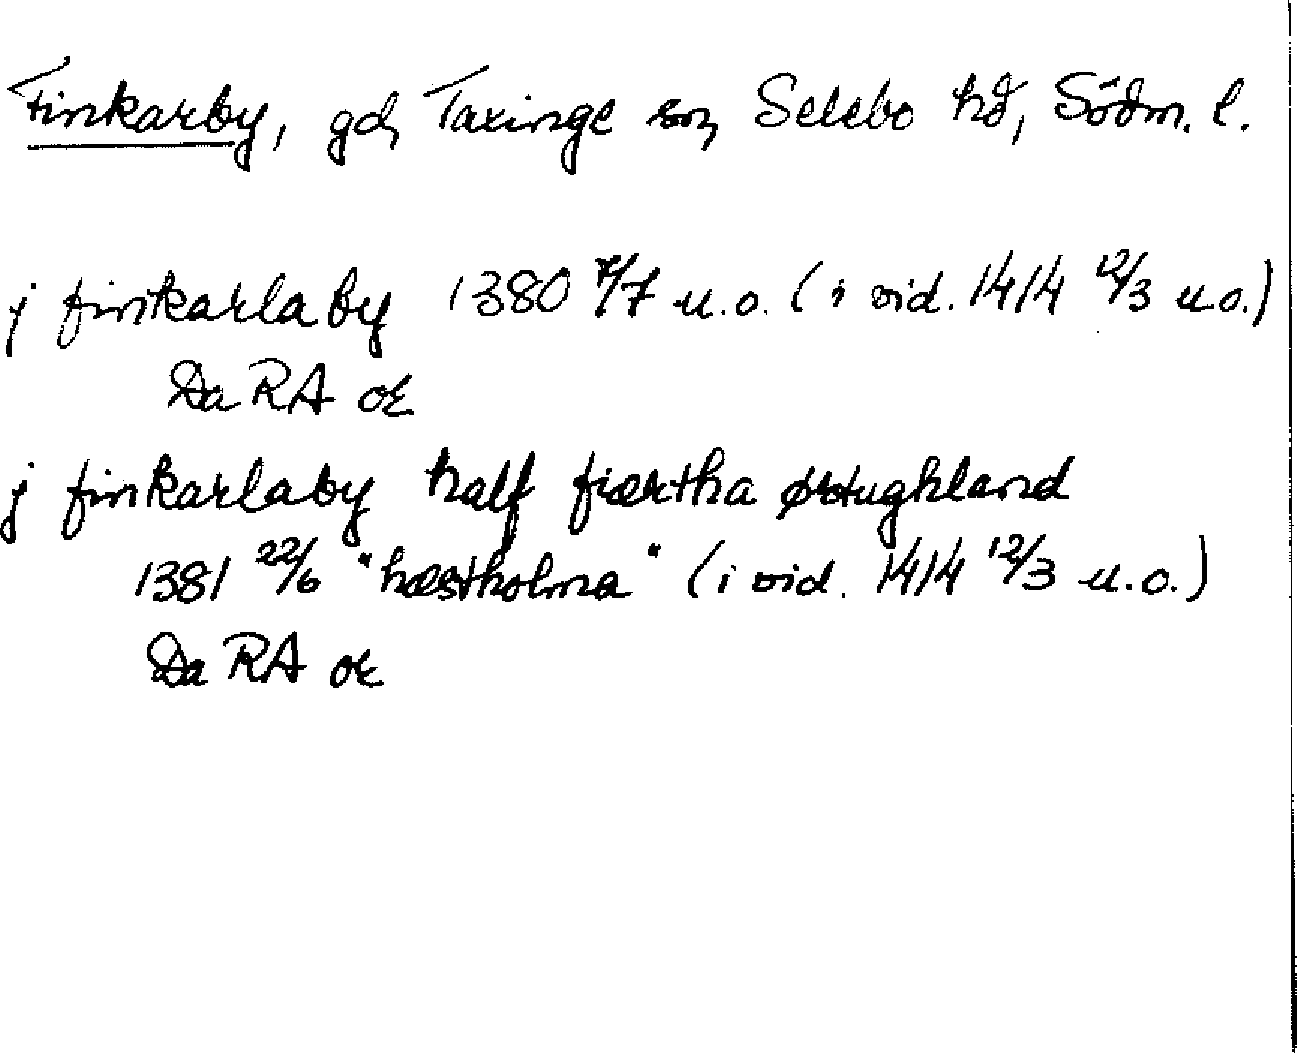 Finkarby, gd, Taxinge sn, Selebo hd, Södm. l.
j finkarlaby 1380 7/7 u.o. (i vid. 1414 12/3 u.o.)
Da RA or
j finkarlaby half fiærtha ørtughland
1381 22/6 "hæstholma" (i vid. 1414 12/3 u.o.)
Da RA or